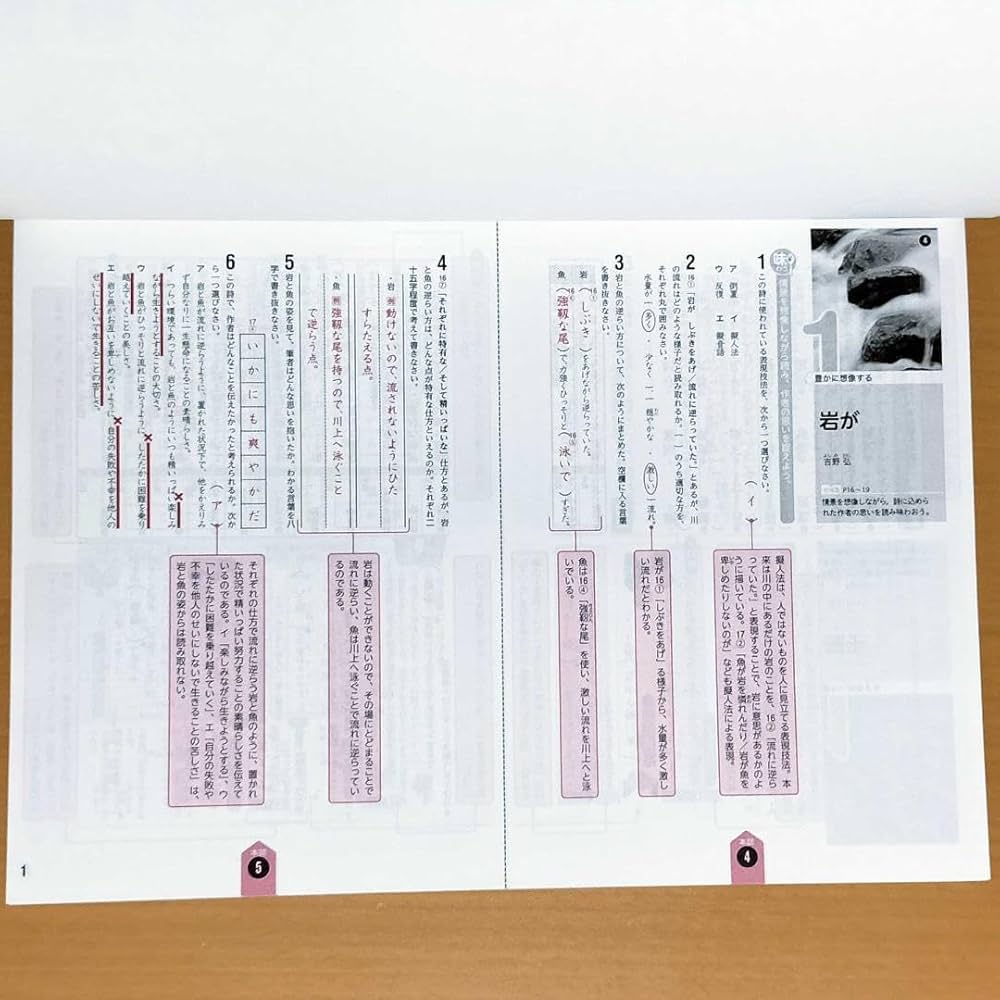 4
1
豊かに想像する
岩が
吉野 弘
よしの ひろし
P16〜19
情景を想像しながら、詩に込めら
れた作者の思いを読み味わおう。
情景を想像しながら読み、作者の思いを捉えよう。
1 この詩に使われている表現技法を、次から一つ選びなさい。
ア 倒置 イ 擬人法
ウ 反復 エ 擬音語
（ イ ）
2 16①「岩が しぶきをあげ／流れに逆らっていた。」とあるが、川
の流れはどのような様子だと読み取れるか。（ ）のうち適切な方を、
それぞれ丸で囲みなさい。
水量が（ 多く ・ 少なく ）、（ 穏やかな ・ 激しい ）流れ。
3 岩と魚の逆らい方について、次のようにまとめた。空欄に入る言葉
を書き抜きなさい。
岩 （ しぶき ）をあげながら逆らっていた。
魚 （ 強靭な尾 ）で力強くひっそりと（ 泳いで ）すぎた。
擬人法は、人ではないものを人に見立てる表現技法。本
来は川の中にあるだけの岩のことを、16②「流れに逆ら
っていた。」と表現することで、岩に意思があるかのよ
うに描いている。17②「魚が岩を憐れんだり／岩が魚を
卑しめたりしないのが」なども擬人法による表現。
岩が16①「しぶきをあげ」る様子から、水量が多く激し
い流れだとわかる。
魚は16④「強靭な尾」を使い、激しい流れを川上へと泳
いでいる。
本誌
4
4 16⑦「それぞれに特有な／そして精いっぱいな」仕方とあるが、岩
と魚の逆らい方は、どんな点が特有な仕方といえるのか。それぞれ二
十五字程度で考えて書きなさい。
・岩 例 動けないので、流されないようにひた
すらたえる点。
・魚 例 強靭な尾を持つので、川上へ泳ぐこと
で逆らう点。
5 岩と魚の姿を見て、筆者はどんな思いを抱いたか。わかる言葉を八
字で書き抜きなさい。
いかにも爽やかだ
6 この詩で、作者はどんなことを伝えたかったと考えられるか。次か
ら一つ選びなさい。
（ ア ）
ア 岩と魚が流れに逆らうように、置かれた状況下で、他をかえりみ
ず自分なりに一生懸命になることの素晴らしさ。
イ つらい環境であっても、岩と魚のようにいつも精いっぱい楽しみ
ながら生きようとすることの大切さ。
ウ 岩と魚がひっそりと流れに逆らうように、したたかに困難を乗り
越えていくことの美しさ。
エ 岩と魚がお互いを卑しめないように、自分の失敗や不幸を他人の
せいにしないで生きることの苦しさ。
岩は動くことができないので、その場にとどまることで
流れに逆らい、魚は川上へ泳ぐことで流れに逆らってい
るのである。
それぞれの仕方で流れに逆らう岩と魚のように、置かれ
た状況で精いっぱい努力することの素晴らしさを伝えて
いるのである。イ「楽しみながら生きようとする」、ウ
「したたかに困難を乗り越えていく」、エ「自分の失敗や
不幸を他人のせいにしないで生きることの苦しさ」は、
岩と魚の姿からは読み取れない。
本誌
5
1